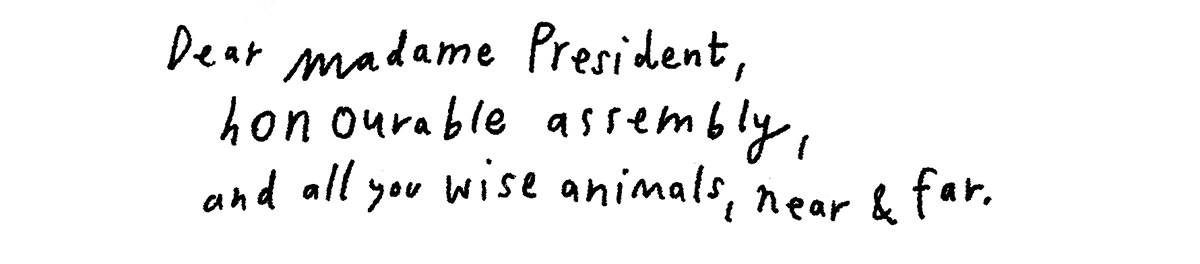 Dear madame President,
honourable assembly,
and all you wise animals, near & far.